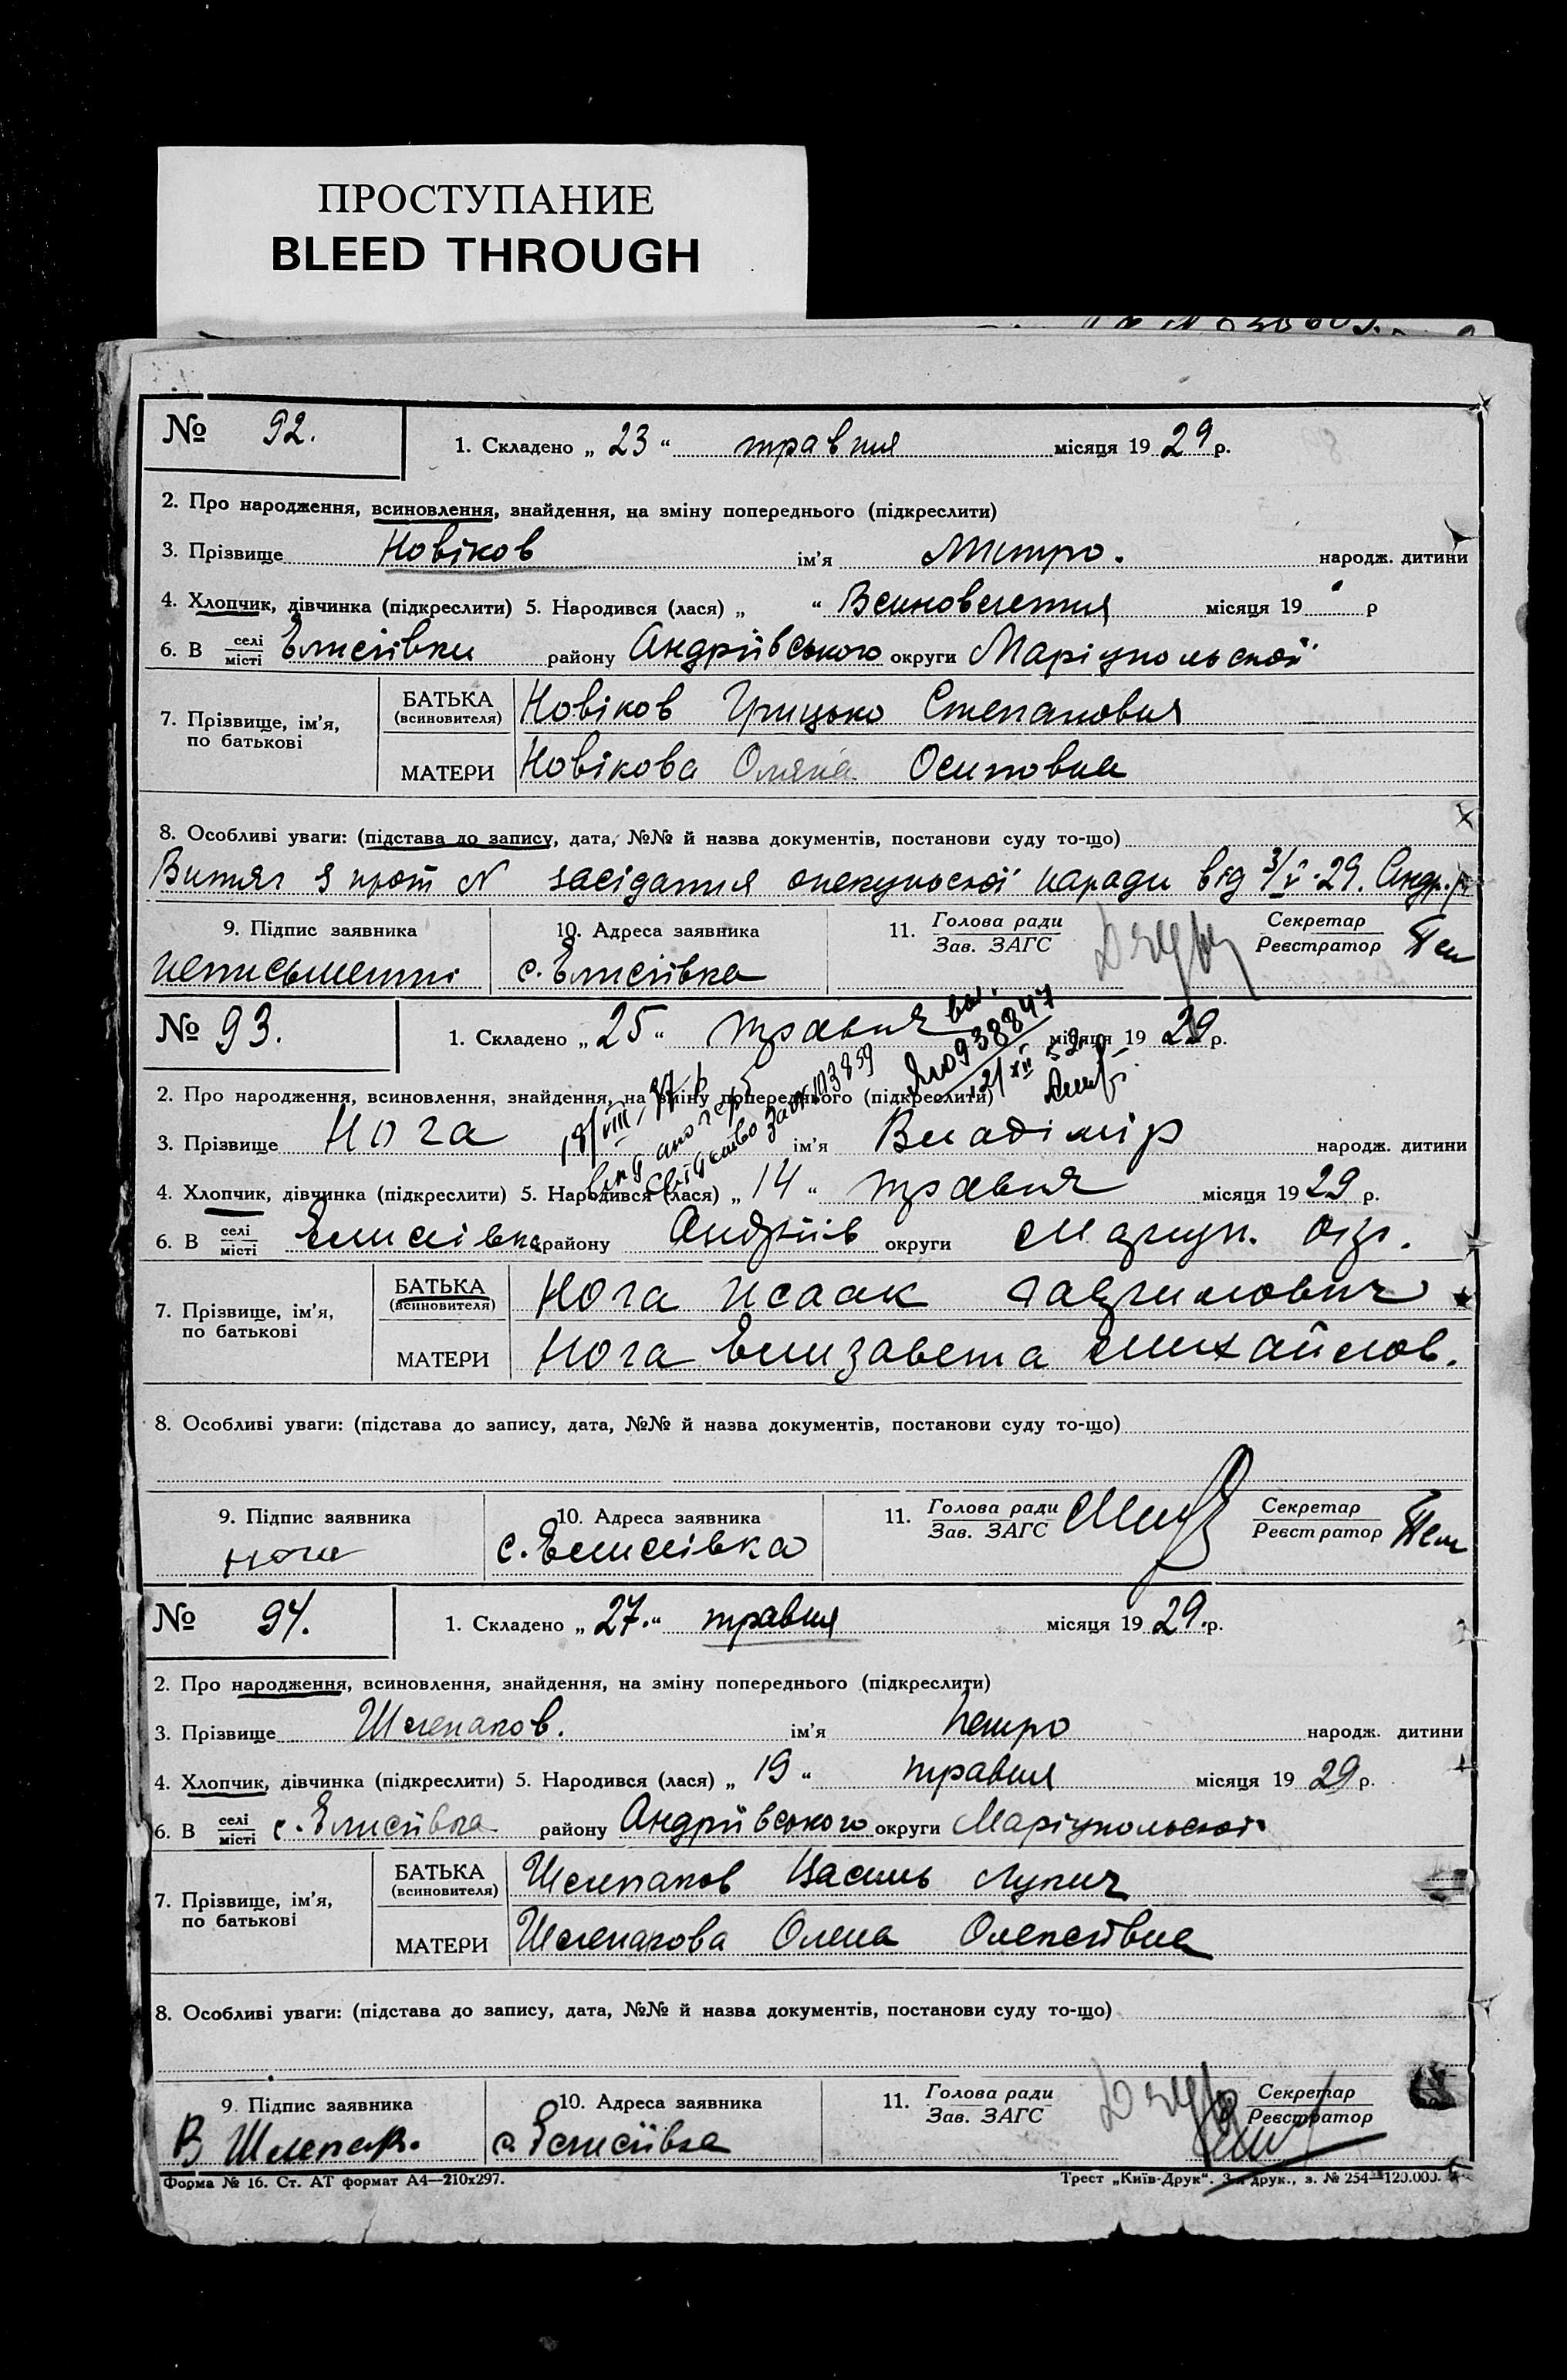 ПРОСТУПАНИЕ
BLEED THROUGH
№ 92. 1. Складено „ 23 “ травня місяця 19 29 р.
2. Про народження, всиновлення, знайдення, на зміну попереднього (підкреслити)
3. Прізвище Новіков ім'я Митро. народж. дитини
4. Хлопчик, дівчинка (підкреслити) 5. Народився (лася) „ “ Всиновлення місяця 19 р
6. В селі місті Єлисіївки району Андріївського округи Маріупольской
7. Прізвище, ім'я, по батькові
БАТЬКА (всиновителя) Новіков Грицько Степанович
МАТЕРИ Новікова Осиповна
8. Особливі уваги: (підстава до запису, дата, №№ й назва документів, постанови суду то-що)
Витяг з прот N засідання опекунської наради від 3/V-29. Андр.
9. Підпис заявника 10. Адреса заявника 11. Голова ради Зав. ЗАГС Секретар Реєстратор
неписьменні с. Єлисіївка
№ 93. 1. Складено „ 25 “ травня місяця 19 29 р.
938847
2. Про народження, всиновлення, знайдення, на зміну попереднього (підкреслити)
3. Прізвище Нога ім'я Владімір народж. дитини
4. Хлопчик, дівчинка (підкреслити) 5. Народився (лася) „ 14 “ травня місяця 19 29 р.
6. В селі місті Елисеівка району Андріїв округи Маріуп. окр.
7. Прізвище, ім'я, по батькові
БАТЬКА (всиновителя) Нога Исаак Гаврилович
МАТЕРИ Нога Елизавета Михайлов.
8. Особливі уваги: (підстава до запису, дата, №№ й назва документів, постанови суду то-що)
9. Підпис заявника 10. Адреса заявника 11. Голова ради Зав. ЗАГС Секретар Реєстратор
Нога с. Елисеівка
№ 94. 1. Складено „ 27. “ травня місяця 19 29. р.
2. Про народження, всиновлення, знайдення, на зміну попереднього (підкреслити)
3. Прізвище Шлепаков. ім'я Петро народж. дитини
4. Хлопчик, дівчинка (підкреслити) 5. Народився (лася) „ 19 “ травня місяця 19 29 р.
6. В селі місті с. Єлисіївка району Андріївського округи Маріупольскої
7. Прізвище, ім'я, по батькові
БАТЬКА (всиновителя) Шлепаков Василь Лукич
МАТЕРИ Шлепакова Олена Олексіївна
8. Особливі уваги: (підстава до запису, дата, №№ й назва документів, постанови суду то-що)
9. Підпис заявника 10. Адреса заявника 11. Голова ради Зав. ЗАГС Секретар Реєстратор
В Шлепак. с. Єлисіївка
Форма № 16. Ст. АТ формат А4—210х297. Трест „Київ-Друк“. 3-я друк., з. № 254—120.000.